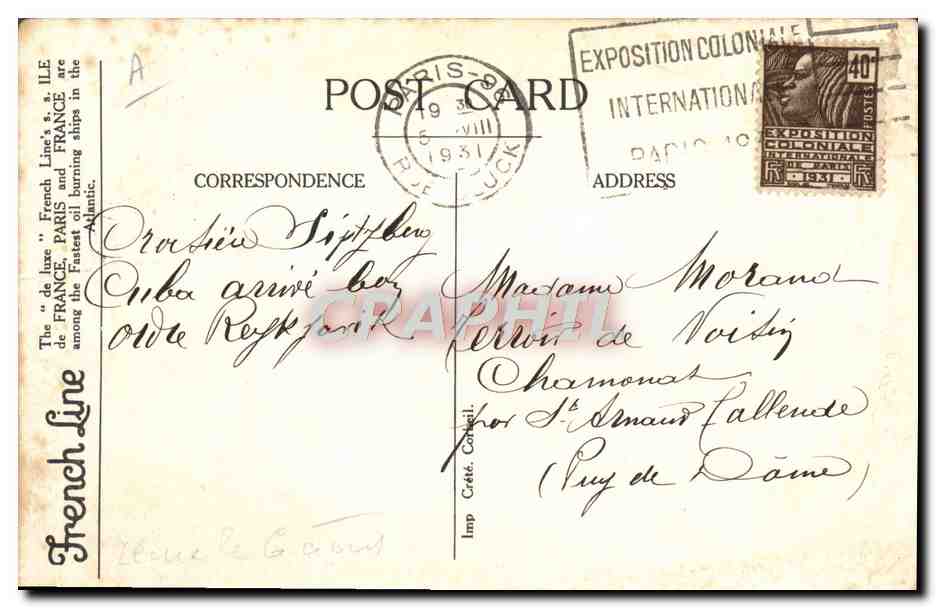 A
POST CARD
PARIS-96
19 30
5 VIII
1931
R. GLUCK
EXPOSITION COLONIALE
INTERNATIONA
PARIS 193
40c
POSTES
EXPOSITION
COLONIALE
INTERNATIONALE
DE PARIS
1931
CORRESPONDENCE
ADDRESS
The " de luxe " French Line's s. s. ILE
de FRANCE, PARIS and FRANCE are
among the Fastest oil burning ships in the
Atlantic.
French Line
Croisière Spitzberg
Cuba arrivé
Reykjavik
Madame Morand
Terroir de Voisin
Chamonat
par St Arnaud Tallende
(Puy de Dôme)
Imp Crété. Corbeil.
CPAPHIL